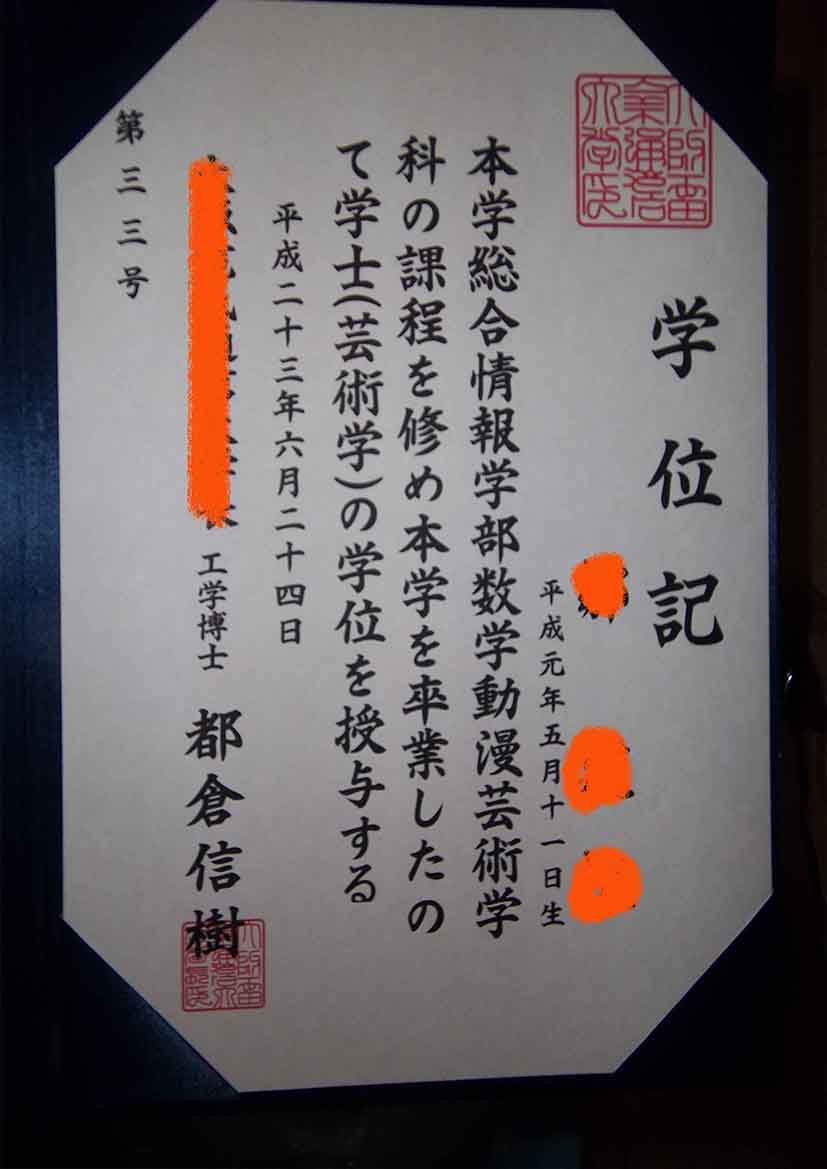 学位記
平成元年五月十一日生
本学総合情報学部数学動漫芸術学
科の課程を修め本学を卒業したの
て学士(芸術学)の学位を授与する
平成二十三年六月二十四日
工学博士 都倉信樹
第三三号